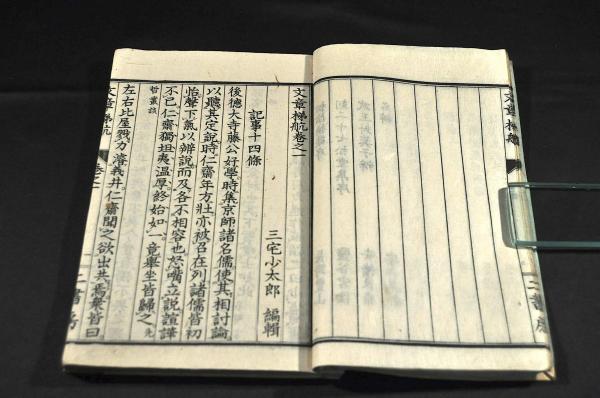 文章梯航
文章梯航卷之一
三宅少太郎 編輯
記事十四條
後德大寺藤公好學時集京師諸名儒使其相討論
以聽其定說時仁齋年方壯亦被召在列諸儒皆初
怡聲下氣以辨說而及各不相容也怒嘴立說諠譁
不已仁齋獨坦夷溫厚終始如一竟擧坐皆歸之先
哲叢談
左右比屋戮力濬義井仁齋聞之欲出共焉衆皆曰
文章梯航 卷之一